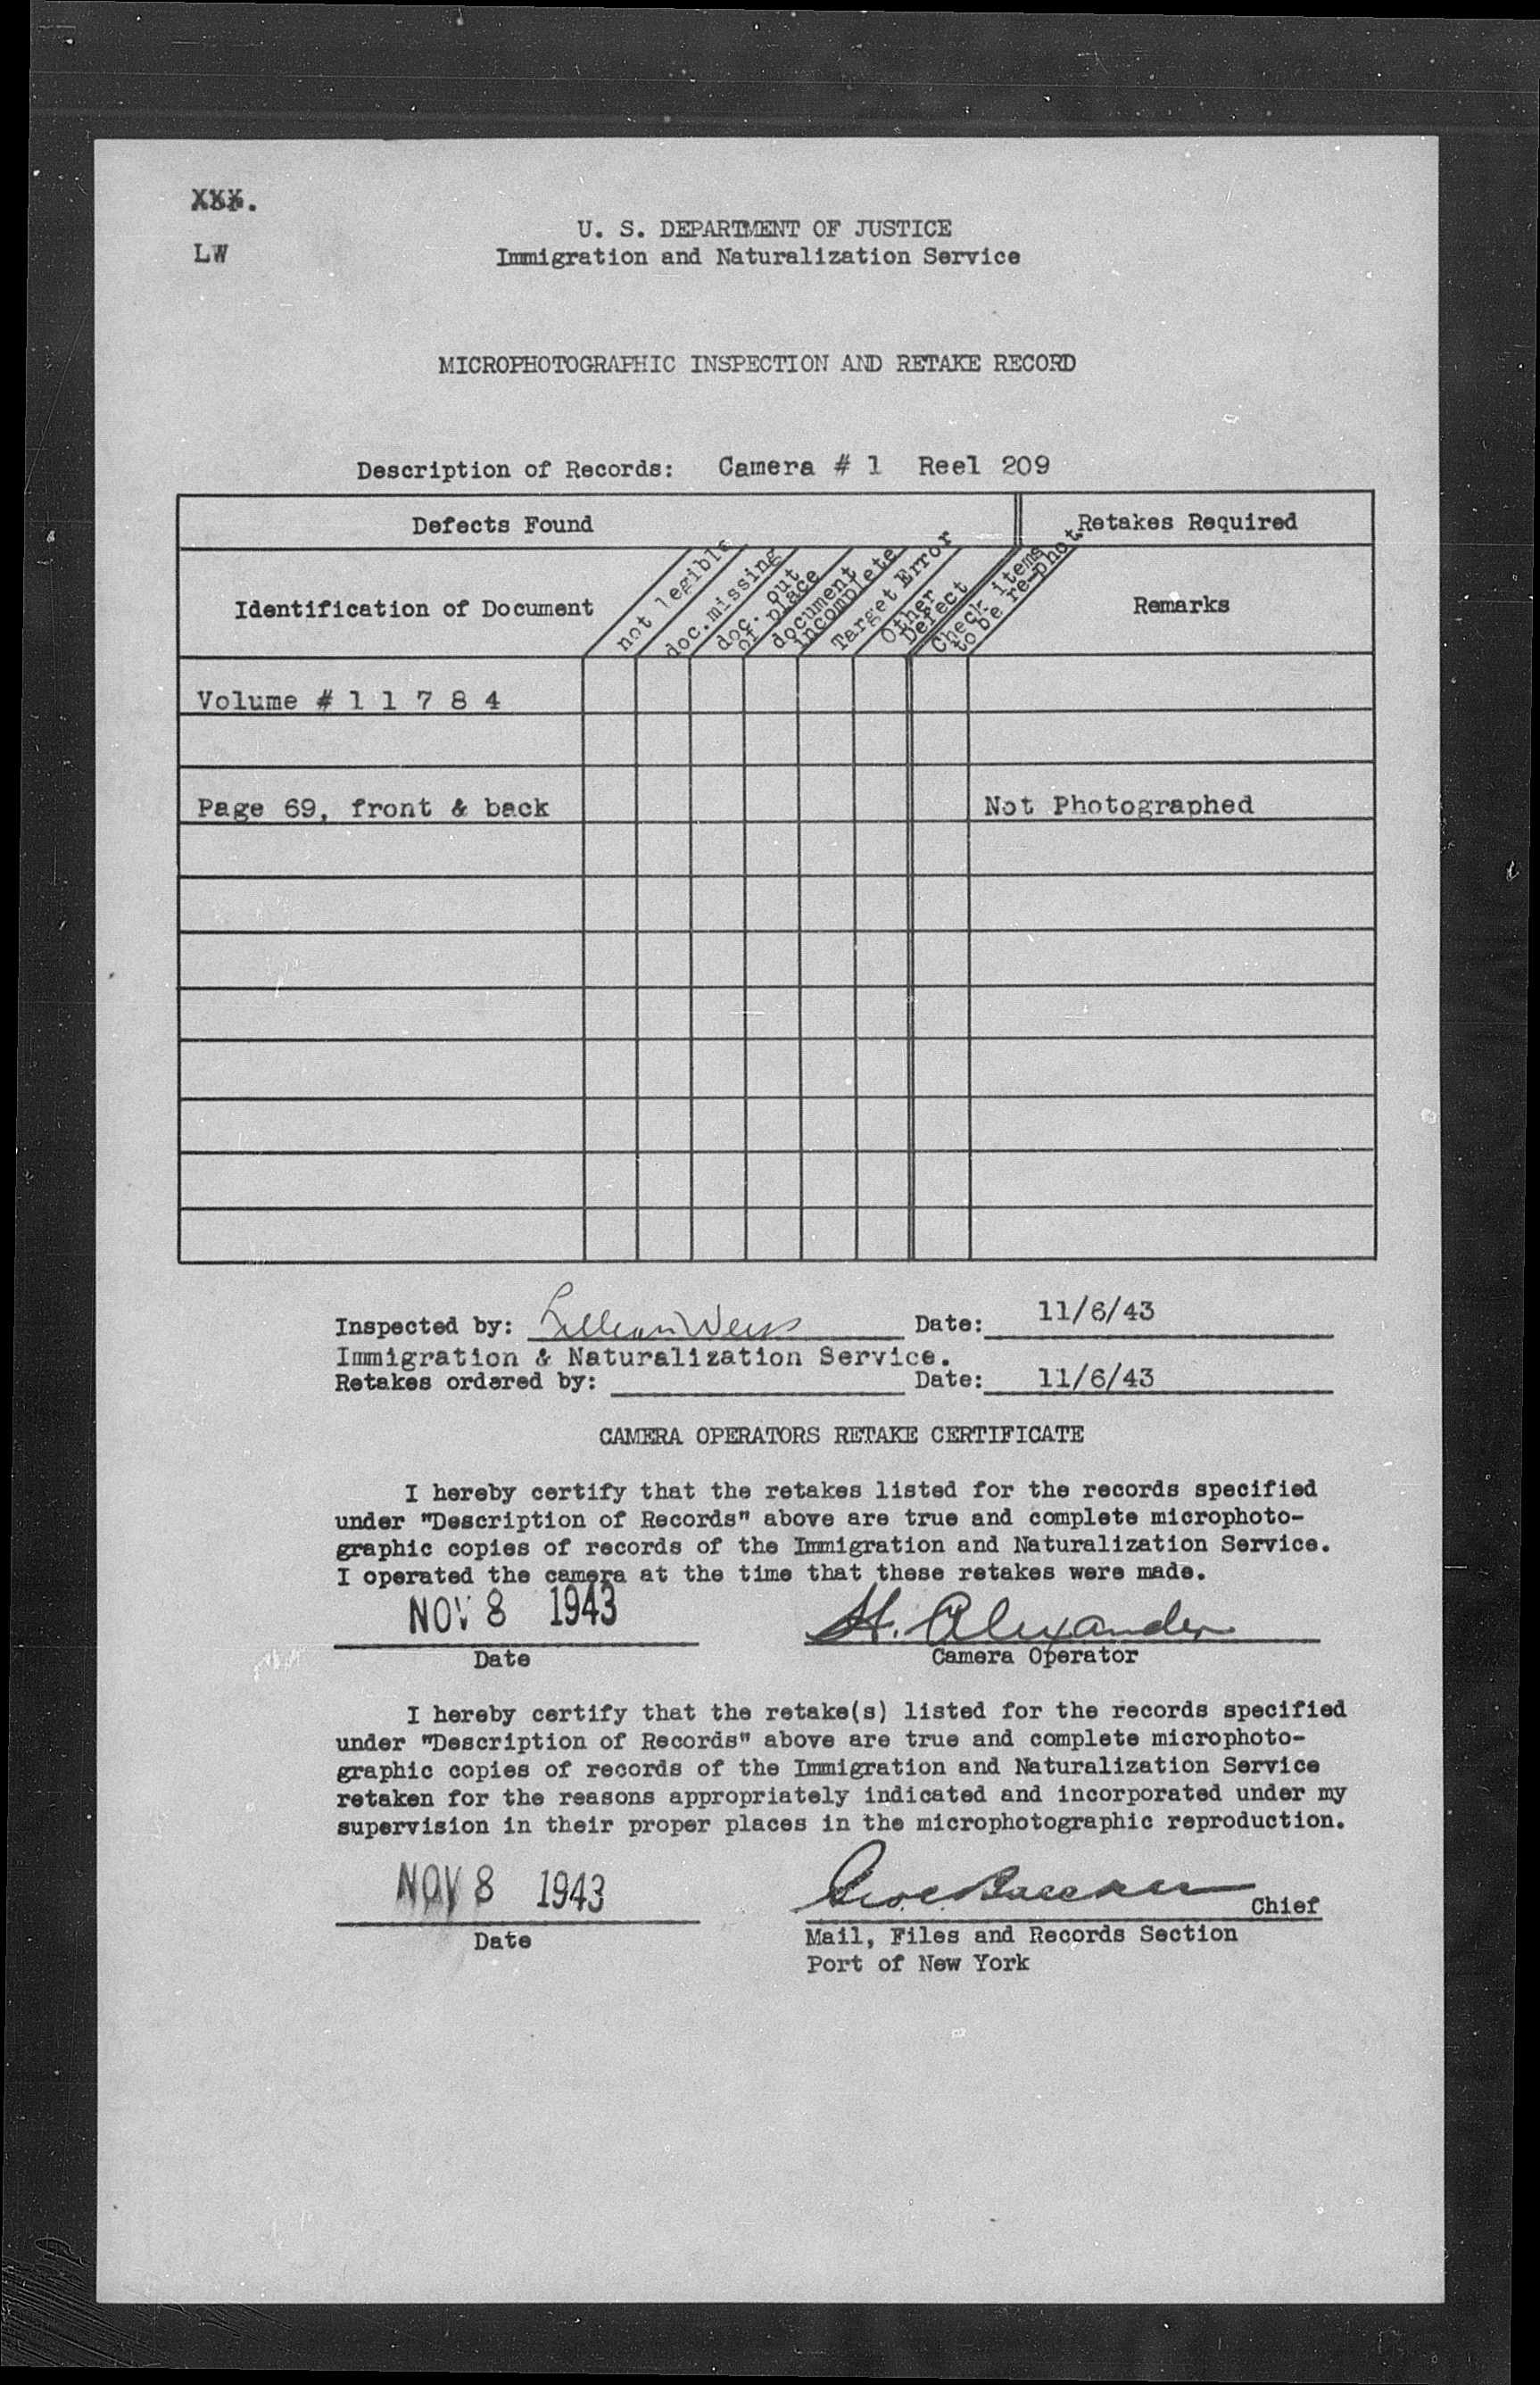 XXX.
LW
U. S. DEPARTMENT OF JUSTICE
Immigration and Naturalization Service
MICROPHOTOGRAPHIC INSPECTION AND RETAKE RECORD
Description of Records: Camera # 1 Reel 209
Defects Found
Retakes Required
Identification of Document
not legible
doc.missing
doc. out
of place
document
incomplete
Target Error
Other
Defect
Check items
to be re-phot.
Remarks
Volume # 1 1 7 8 4
Page 69, front & back
Not Photographed
Inspected by: Lillian Weiss Date: 11/6/43
Immigration & Naturalization Service.
Retakes ordered by: Date: 11/6/43
CAMERA OPERATORS RETAKE CERTIFICATE
I hereby certify that the retakes listed for the records specified
under "Description of Records" above are true and complete microphoto-
graphic copies of records of the Immigration and Naturalization Service.
I operated the camera at the time that these retakes were made.
NOV 8 1943 H. Alexander
Date
Camera Operator
I hereby certify that the retake(s) listed for the records specified
under "Description of Records" above are true and complete microphoto-
graphic copies of records of the Immigration and Naturalization Service
retaken for the reasons appropriately indicated and incorporated under my
supervision in their proper places in the microphotographic reproduction.
NOV 8 1943
Chief
Date
Mail, Files and Records Section
Port of New York